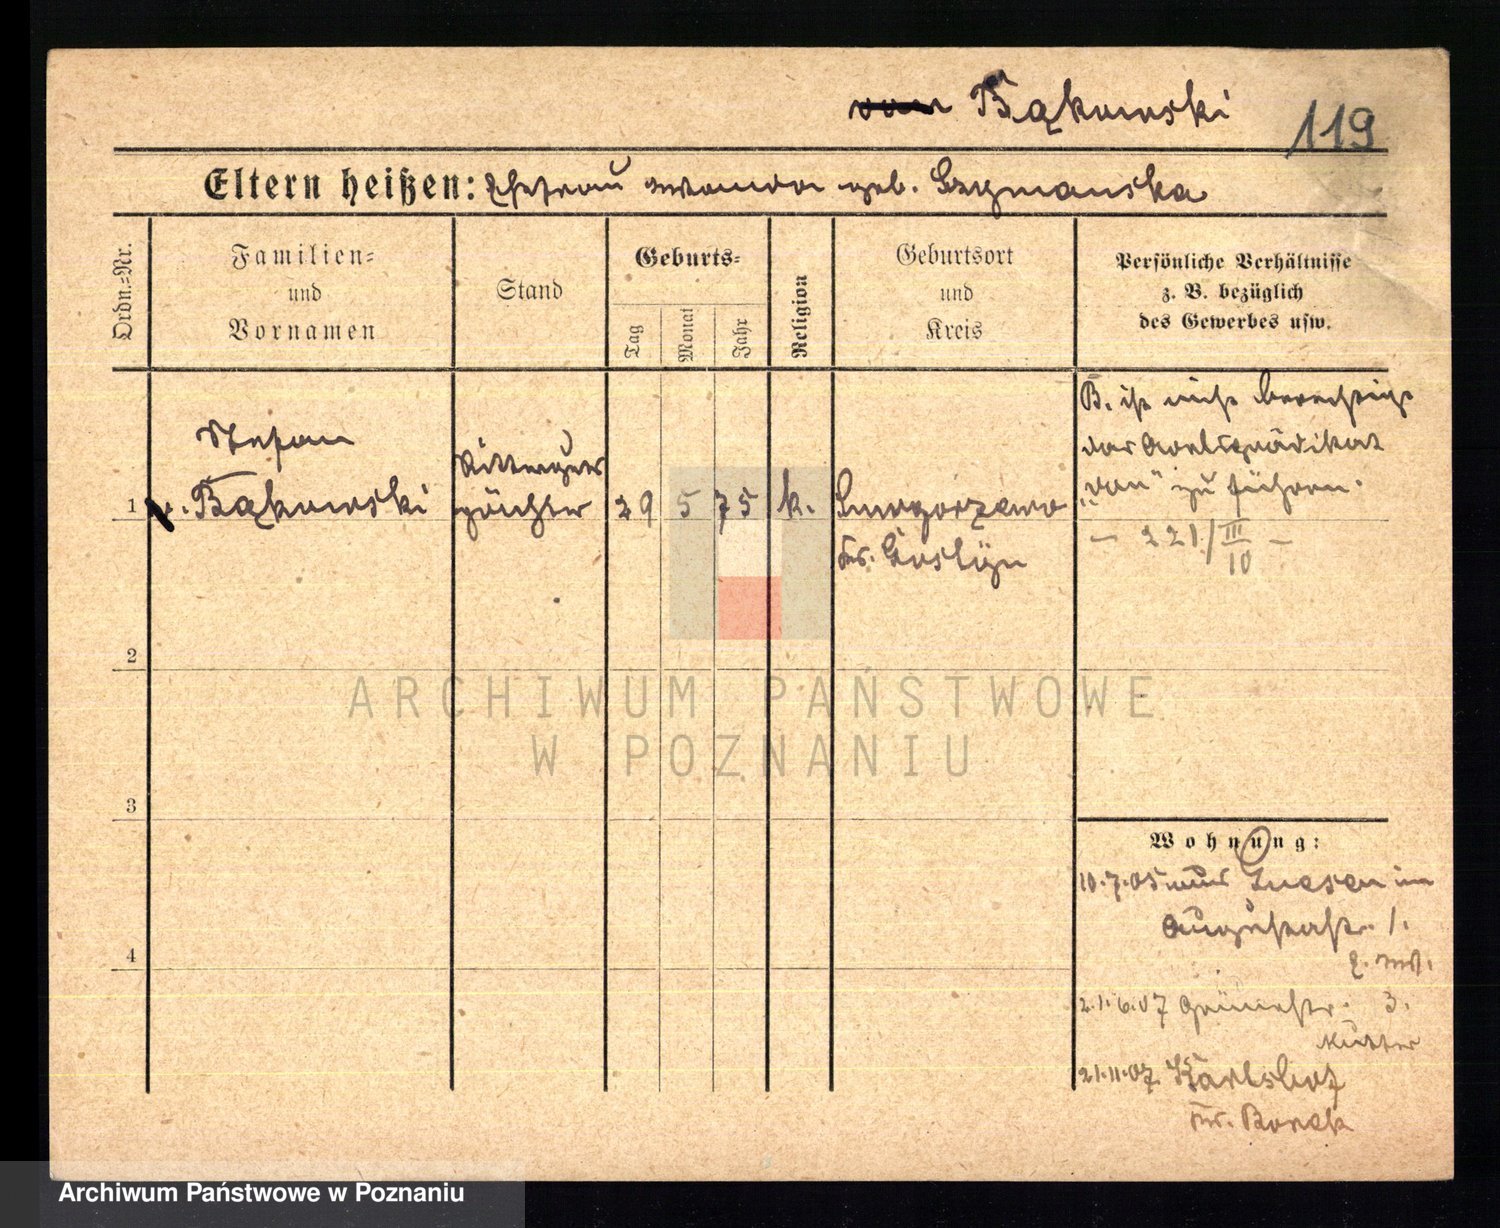 von Bąkowski
119
Eltern heißen: Ehefrau Wanda geb. Szymanska
Ordn.-Nr.
Familien-
und
Vornamen
Stand
Geburts-
Tag
Monat
Jahr
Religion
Geburtsort
und
Kreis
Persönliche Verhältnisse
z. B. bezüglich
des Gewerbes usw.
1
Stefan
v. Bąkowski
Rittergut
pächter
29
5
75
k.
Smogorzewo
Kr. Gostyn
B. ist nicht berechtigt
das Adelsprädikat
„von" zu führen.
- 221/III
10 -
2
3
4
Wohnung:
10.7.05 aus Gnesen in
Augustastr. 1.
2.1.6.07 3.
Mutter
21.11.07 Karlshof
Kr. Borek
ARCHIWUM PAŃSTWOWE
W POZNANIU
Archiwum Państwowe w Poznaniu